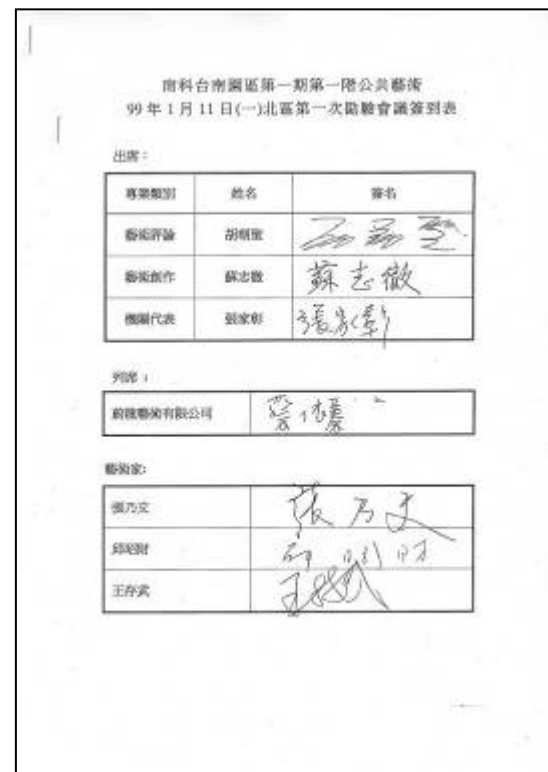 南科台南園區第一期第一階公共藝術
99年1月11日(一)北區第一次勘驗會議簽到表
出席:
專業類別 姓名 簽名
藝術評論 胡朝聖
藝術創作 蘇志徹 蘇志徹
機關代表 張家彰 張家彰
列席:
藝術有限公司
藝術家:
張乃文 張乃文
邱昭財 邱昭財
王存武